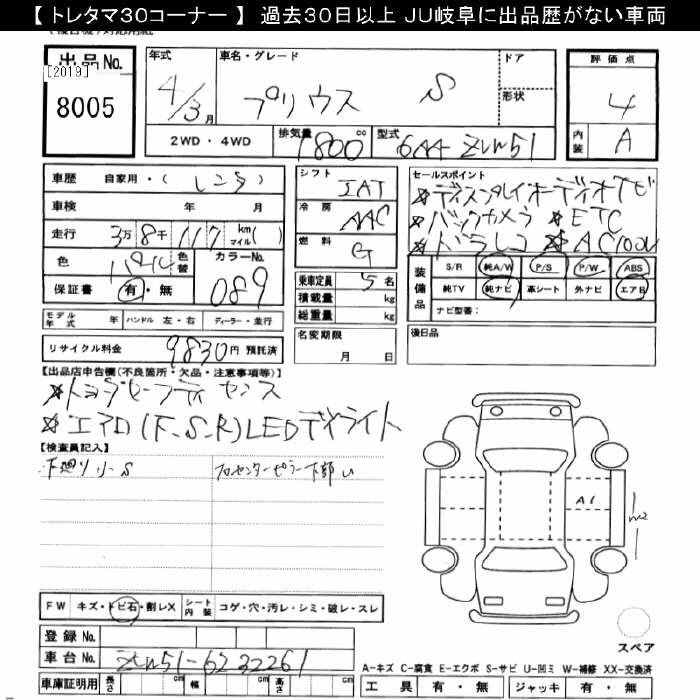 【 トレタマ30コーナー 】 過去30日以上 JU岐阜に出品歴がない車両
出品No.
[2019]
8005
年式
4/3月
車名・グレード
プリウス S
ドア
形状
評価点
4
内装
A
2WD ・ 4WD
排気量
1800 cc
型式
6AA-ZVW51
車歴 自家用・( レンタ )
車検 年 月
走行 3万8千117 km マイル( )
色
色替
カラーNo.
089
保証書 有・無
シフト
IAT
冷房
AAC
燃料
G
乗車定員 5名
積載量 kg
総重量 kg
セールスポイント
☆ディスプレイオーディオTV
☆バックカメラ ☆ETC
☆ドラレコ ☆AC100V
装備品
S/R 純A/W P/S P/W ABS
純TV 純ナビ 革シート 外ナビ エアB
ナビ型番:
モデル年式 年 ハンドル 左・右 ディーラー・並行
リサイクル料金 9830円 預託済
名変期限
月 日
後日品
【出品店申告欄(不良箇所・欠品・注意事項等)】
☆トヨタセーフティセンス
☆エアロ(F.S.R)LEDデイライト
【検査員記入】
下廻り小S
センターピラー下部U
A1
W2
FW キズ・トビ石・割レX シート内装 コゲ・穴・汚レ・シミ・破レ・スレ
登録No.
車台No. ZVW51-6232261
車庫証明用 長さ cm 幅 cm 高さ cm
スペア
A-キズ C-腐食 E-エクボ S-サビ U-凹ミ W-補修 XX-交換済
工具 有・無 ジャッキ 有・無